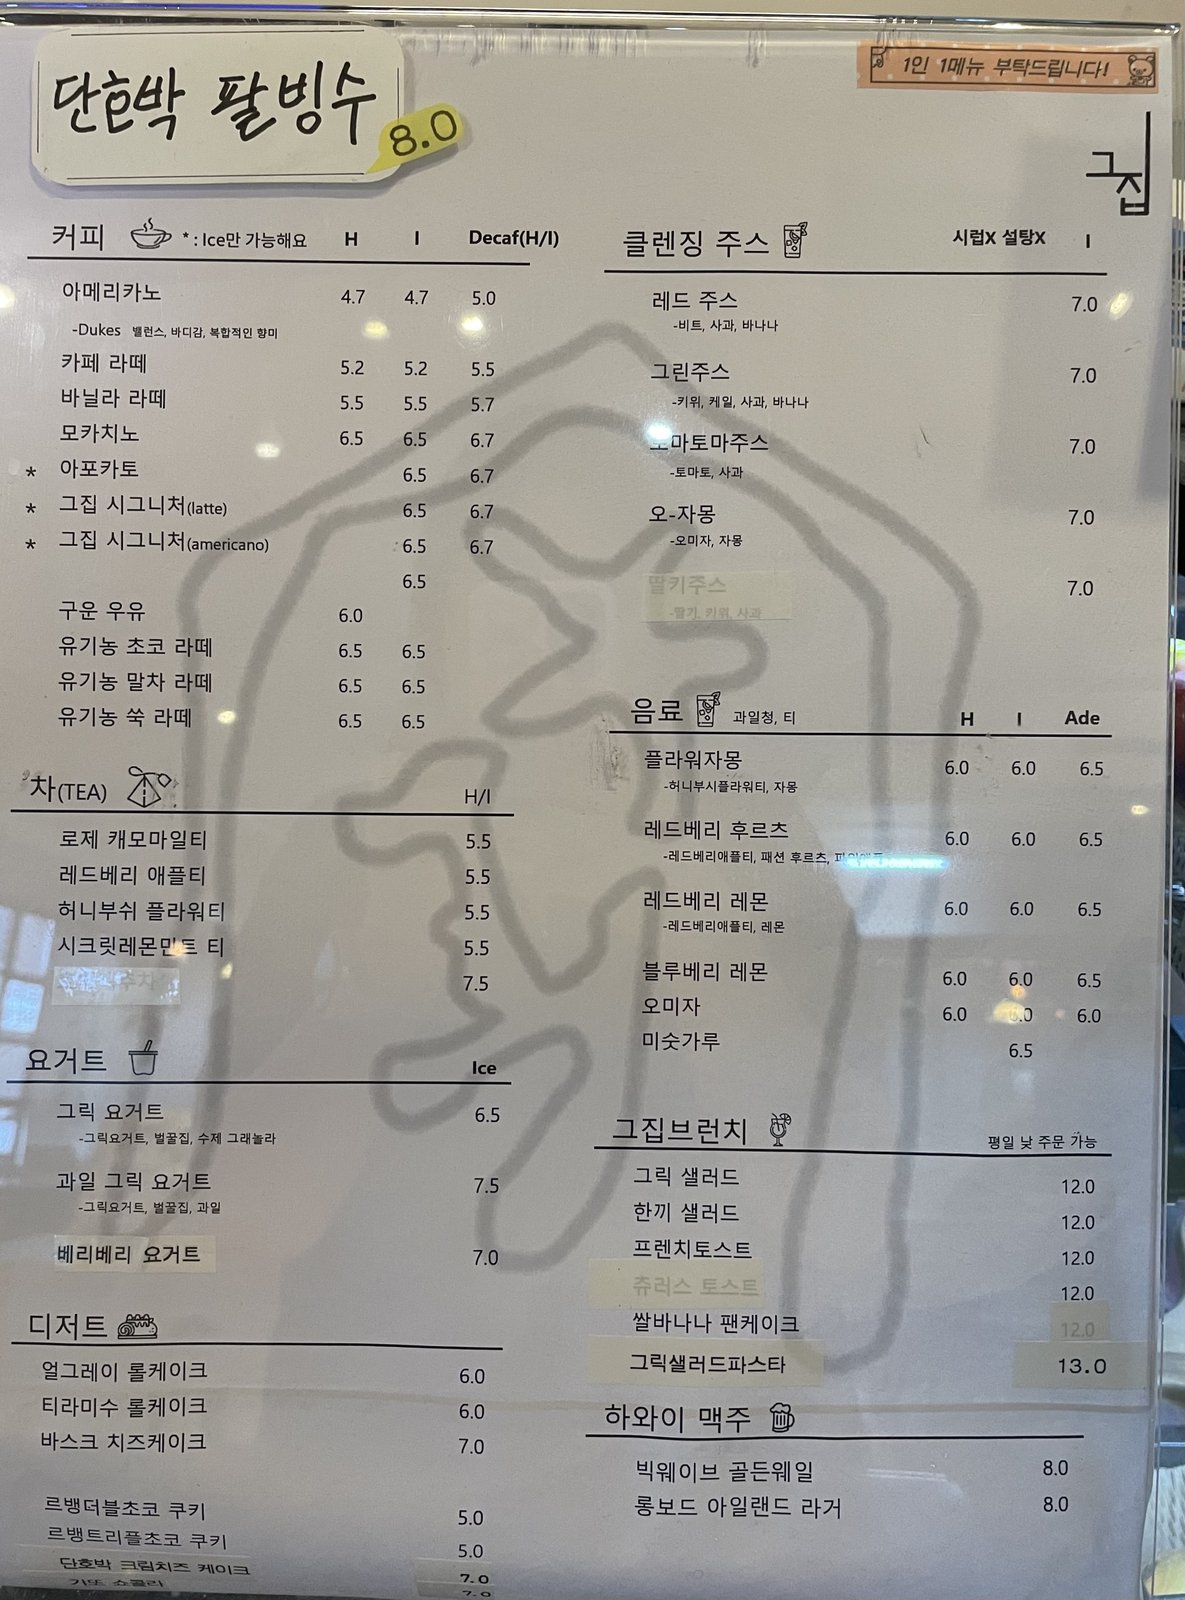 단호박 팥빙수
8.0
1인 1메뉴 부탁드립니다!
그집
커피 * : Ice만 가능해요 H I Decaf(H/I)
아메리카노 4.7 4.7 5.0
-Dukes 밸런스, 바디감, 복합적인 향미
카페 라떼 5.2 5.2 5.5
바닐라 라떼 5.5 5.5 5.7
모카치노 6.5 6.5 6.7
* 아포카토 6.5 6.7
* 그집 시그니처(latte) 6.5 6.7
* 그집 시그니처(americano) 6.5 6.7
6.5
구운 우유 6.0
유기농 초코 라떼 6.5 6.5
유기농 말차 라떼 6.5 6.5
유기농 쑥 라떼 6.5 6.5
차(TEA) H/I
로제 캐모마일티 5.5
레드베리 애플티 5.5
허니부쉬 플라워티 5.5
시크릿레몬민트 티 5.5
7.5
요거트 Ice
그릭 요거트 6.5
-그릭요거트, 벌꿀집, 수제 그래놀라
과일 그릭 요거트 7.5
-그릭요거트, 벌꿀집, 과일
베리베리 요거트 7.0
디저트
얼그레이 롤케이크 6.0
티라미수 롤케이크 6.0
바스크 치즈케이크 7.0
르뱅더블초코 쿠키 5.0
르뱅트리플초코 쿠키 5.0
단호박 크림치즈 케이크 7.0
7.0
클렌징 주스 시럽X 설탕X I
레드 주스 7.0
-비트, 사과, 바나나
그린주스 7.0
-키위, 케일, 사과, 바나나
토마토마주스 7.0
-토마토, 사과
오-자몽 7.0
-오미자, 자몽
딸키주스 7.0
-딸기, 키위, 사과
음료 과일청, 티 H I Ade
플라워자몽 6.0 6.0 6.5
-허니부시플라워티, 자몽
레드베리 후르츠 6.0 6.0 6.5
-레드베리애플티, 패션 후르츠,
레드베리 레몬 6.0 6.0 6.5
-레드베리애플티, 레몬
블루베리 레몬 6.0 6.0 6.5
오미자 6.0 6.0 6.0
미숫가루 6.5
그집브런치 평일 낮 주문 가능
그릭 샐러드 12.0
한끼 샐러드 12.0
프렌치토스트 12.0
츄러스 토스트 12.0
쌀바나나 팬케이크 12.0
그릭샐러드파스타 13.0
하와이 맥주
빅웨이브 골든웨일 8.0
롱보드 아일랜드 라거 8.0